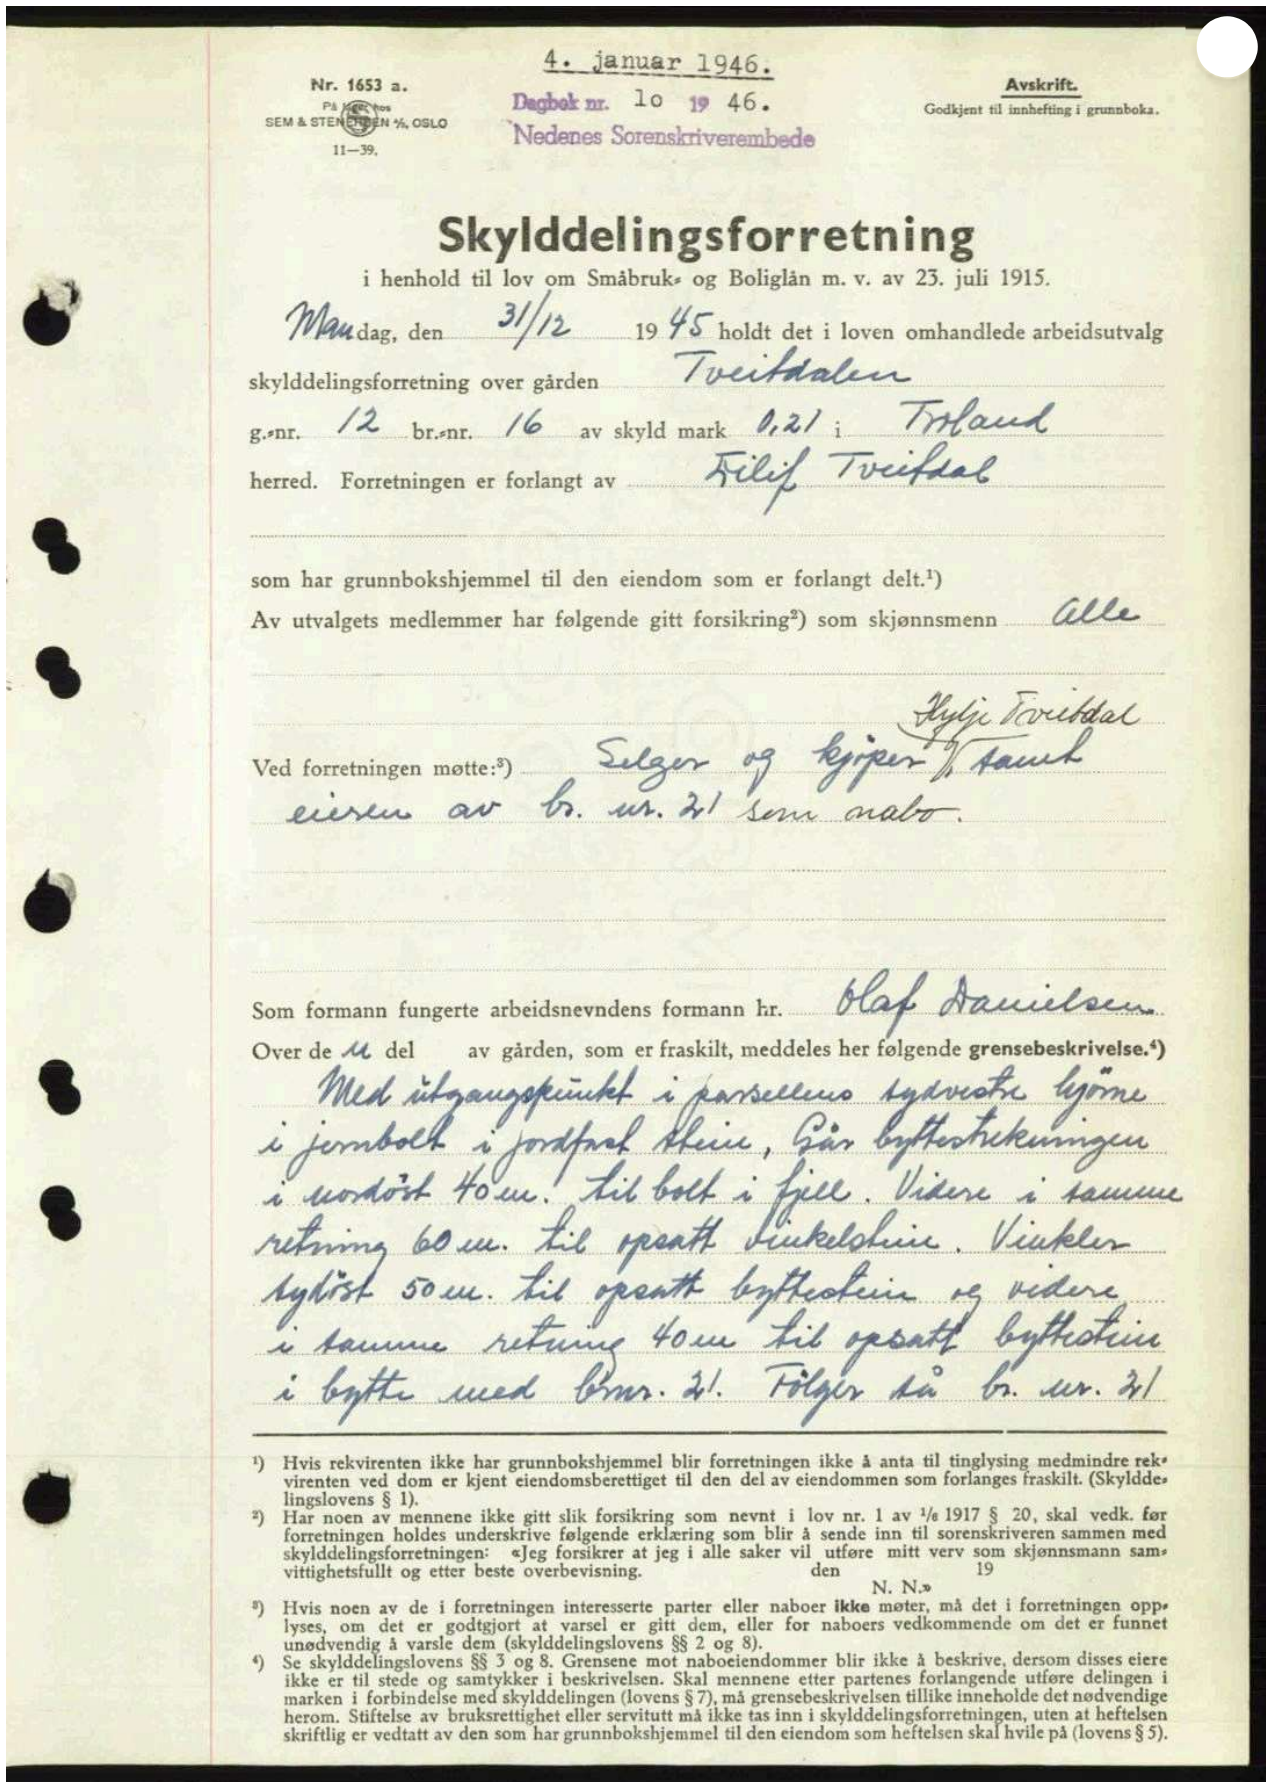 4. januar 1946.
Nr. 1653 a.
På lager hos
SEM & STENERSEN A/S, OSLO
11—39.
Dagbok nr. 10 1946.
Nedenes Sorenskriverembede
Avskrift.
Godkjent til innhefting i grunnboka.
Skylddelingsforretning
i henhold til lov om Småbruk- og Boliglån m. v. av 23. juli 1915.
Mandag, den 31/12 1945 holdt det i loven omhandlede arbeidsutvalg
skylddelingsforretning over gården Tveitdalen
g.-nr. 12 br.-nr. 16 av skyld mark 0,21 i Froland
herred. Forretningen er forlangt av Eilif Tveitdal
som har grunnbokshjemmel til den eiendom som er forlangt delt.¹)
Av utvalgets medlemmer har følgende gitt forsikring²) som skjønnsmenn Alle
Hylje Tveitdal
Ved forretningen møtte:³) Selger og kjøper samt
eieren av br. nr. 21 som nabo.
Som formann fungerte arbeidsnevndens formann hr. Olaf Danielsen
Over de n del av gården, som er fraskilt, meddeles her følgende grensebeskrivelse.⁴)
Med utgangspunkt i parsellens sydvestre hjörne
i jernbolt i jordfast stein, Går byttestrekningen
i nordöst 40 m. til bolt i fjell. Videre i samme
retning 60 m. til opsatt vinkelstein. Vinkler
sydöst 50 m. til opsatt byttestein og videre
i samme retning 40 m til opsatt byttestein
i bytte med brnr. 21. Fölger så br. nr. 21
¹) Hvis rekvirenten ikke har grunnbokshjemmel blir forretningen ikke å anta til tinglysing medmindre rek-
virenten ved dom er kjent eiendomsberettiget til den del av eiendommen som forlanges fraskilt. (Skyldde-
lingslovens § 1).
²) Har noen av mennene ikke gitt slik forsikring som nevnt i lov nr. 1 av 1/6 1917 § 20, skal vedk. før
forretningen holdes underskrive følgende erklæring som blir å sende inn til sorenskriveren sammen med
skylddelingsforretningen: «Jeg forsikrer at jeg i alle saker vil utføre mitt verv som skjønnsmann sam-
vittighetsfullt og etter beste overbevisning. den 19
N. N.»
³) Hvis noen av de i forretningen interesserte parter eller naboer ikke møter, må det i forretningen opp-
lyses, om det er godtgjort at varsel er gitt dem, eller for naboers vedkommende om det er funnet
unødvendig å varsle dem (skylddelingslovens §§ 2 og 8).
⁴) Se skylddelingslovens §§ 3 og 8. Grensene mot naboeiendommer blir ikke å beskrive, dersom disses eiere
ikke er til stede og samtykker i beskrivelsen. Skal mennene etter partenes forlangende utføre delingen i
marken i forbindelse med skylddelingen (lovens § 7), må grensebeskrivelsen tillike inneholde det nødvendige
herom. Stiftelse av bruksrettighet eller servitutt må ikke tas inn i skylddelingsforretningen, uten at heftelsen
skriftlig er vedtatt av den som har grunnbokshjemmel til den eiendom som heftelsen skal hvile på (lovens § 5).